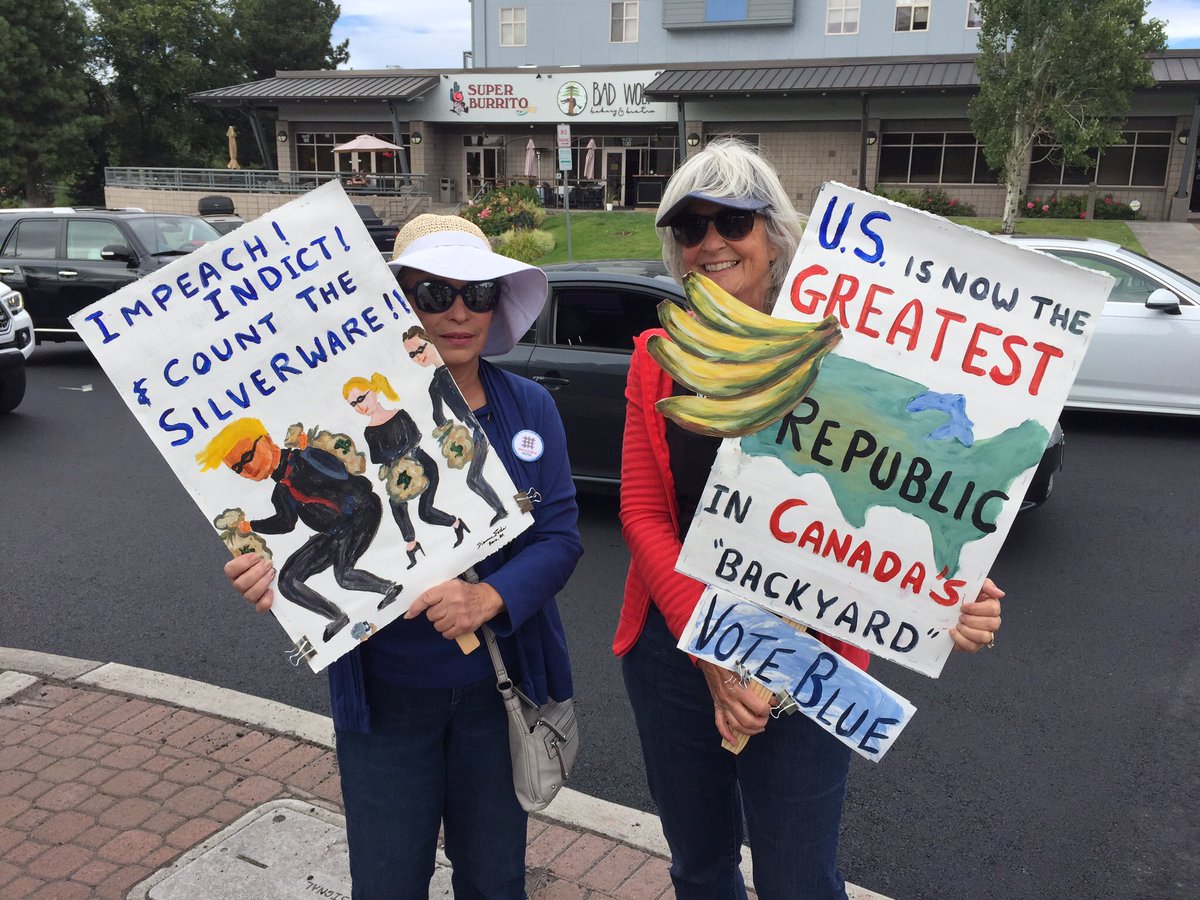 SUPER
BURRITO
BAD WOLF
bakery & bistro
IMPEACH!
INDICT!
& COUNT THE
SILVERWARE!!
U.S. IS NOW THE
GREATEST
REPUBLIC
IN CANADA'S
"BACKYARD"
VOTE BLUE
SIGNAL